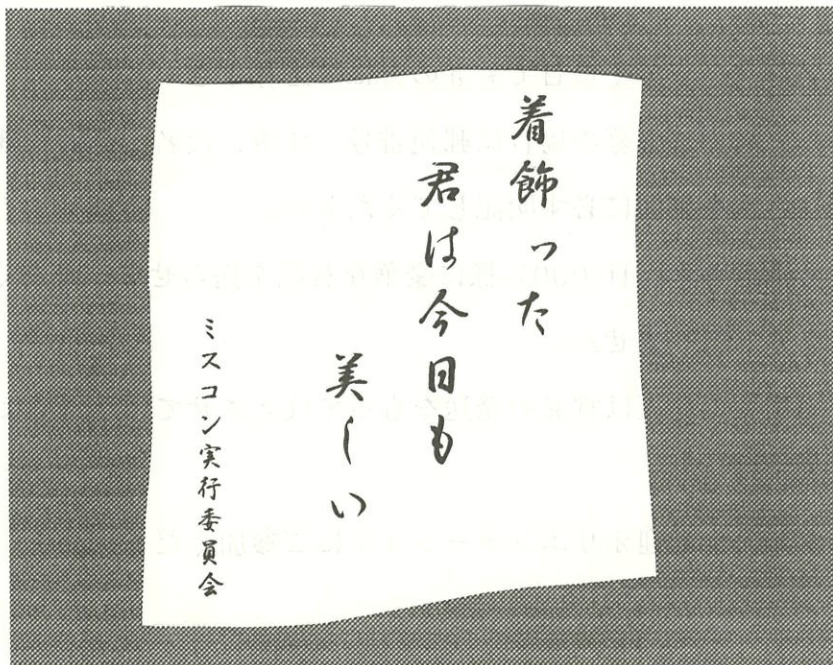 着飾った
君は今日も
美しい
ミスコン実行委員会